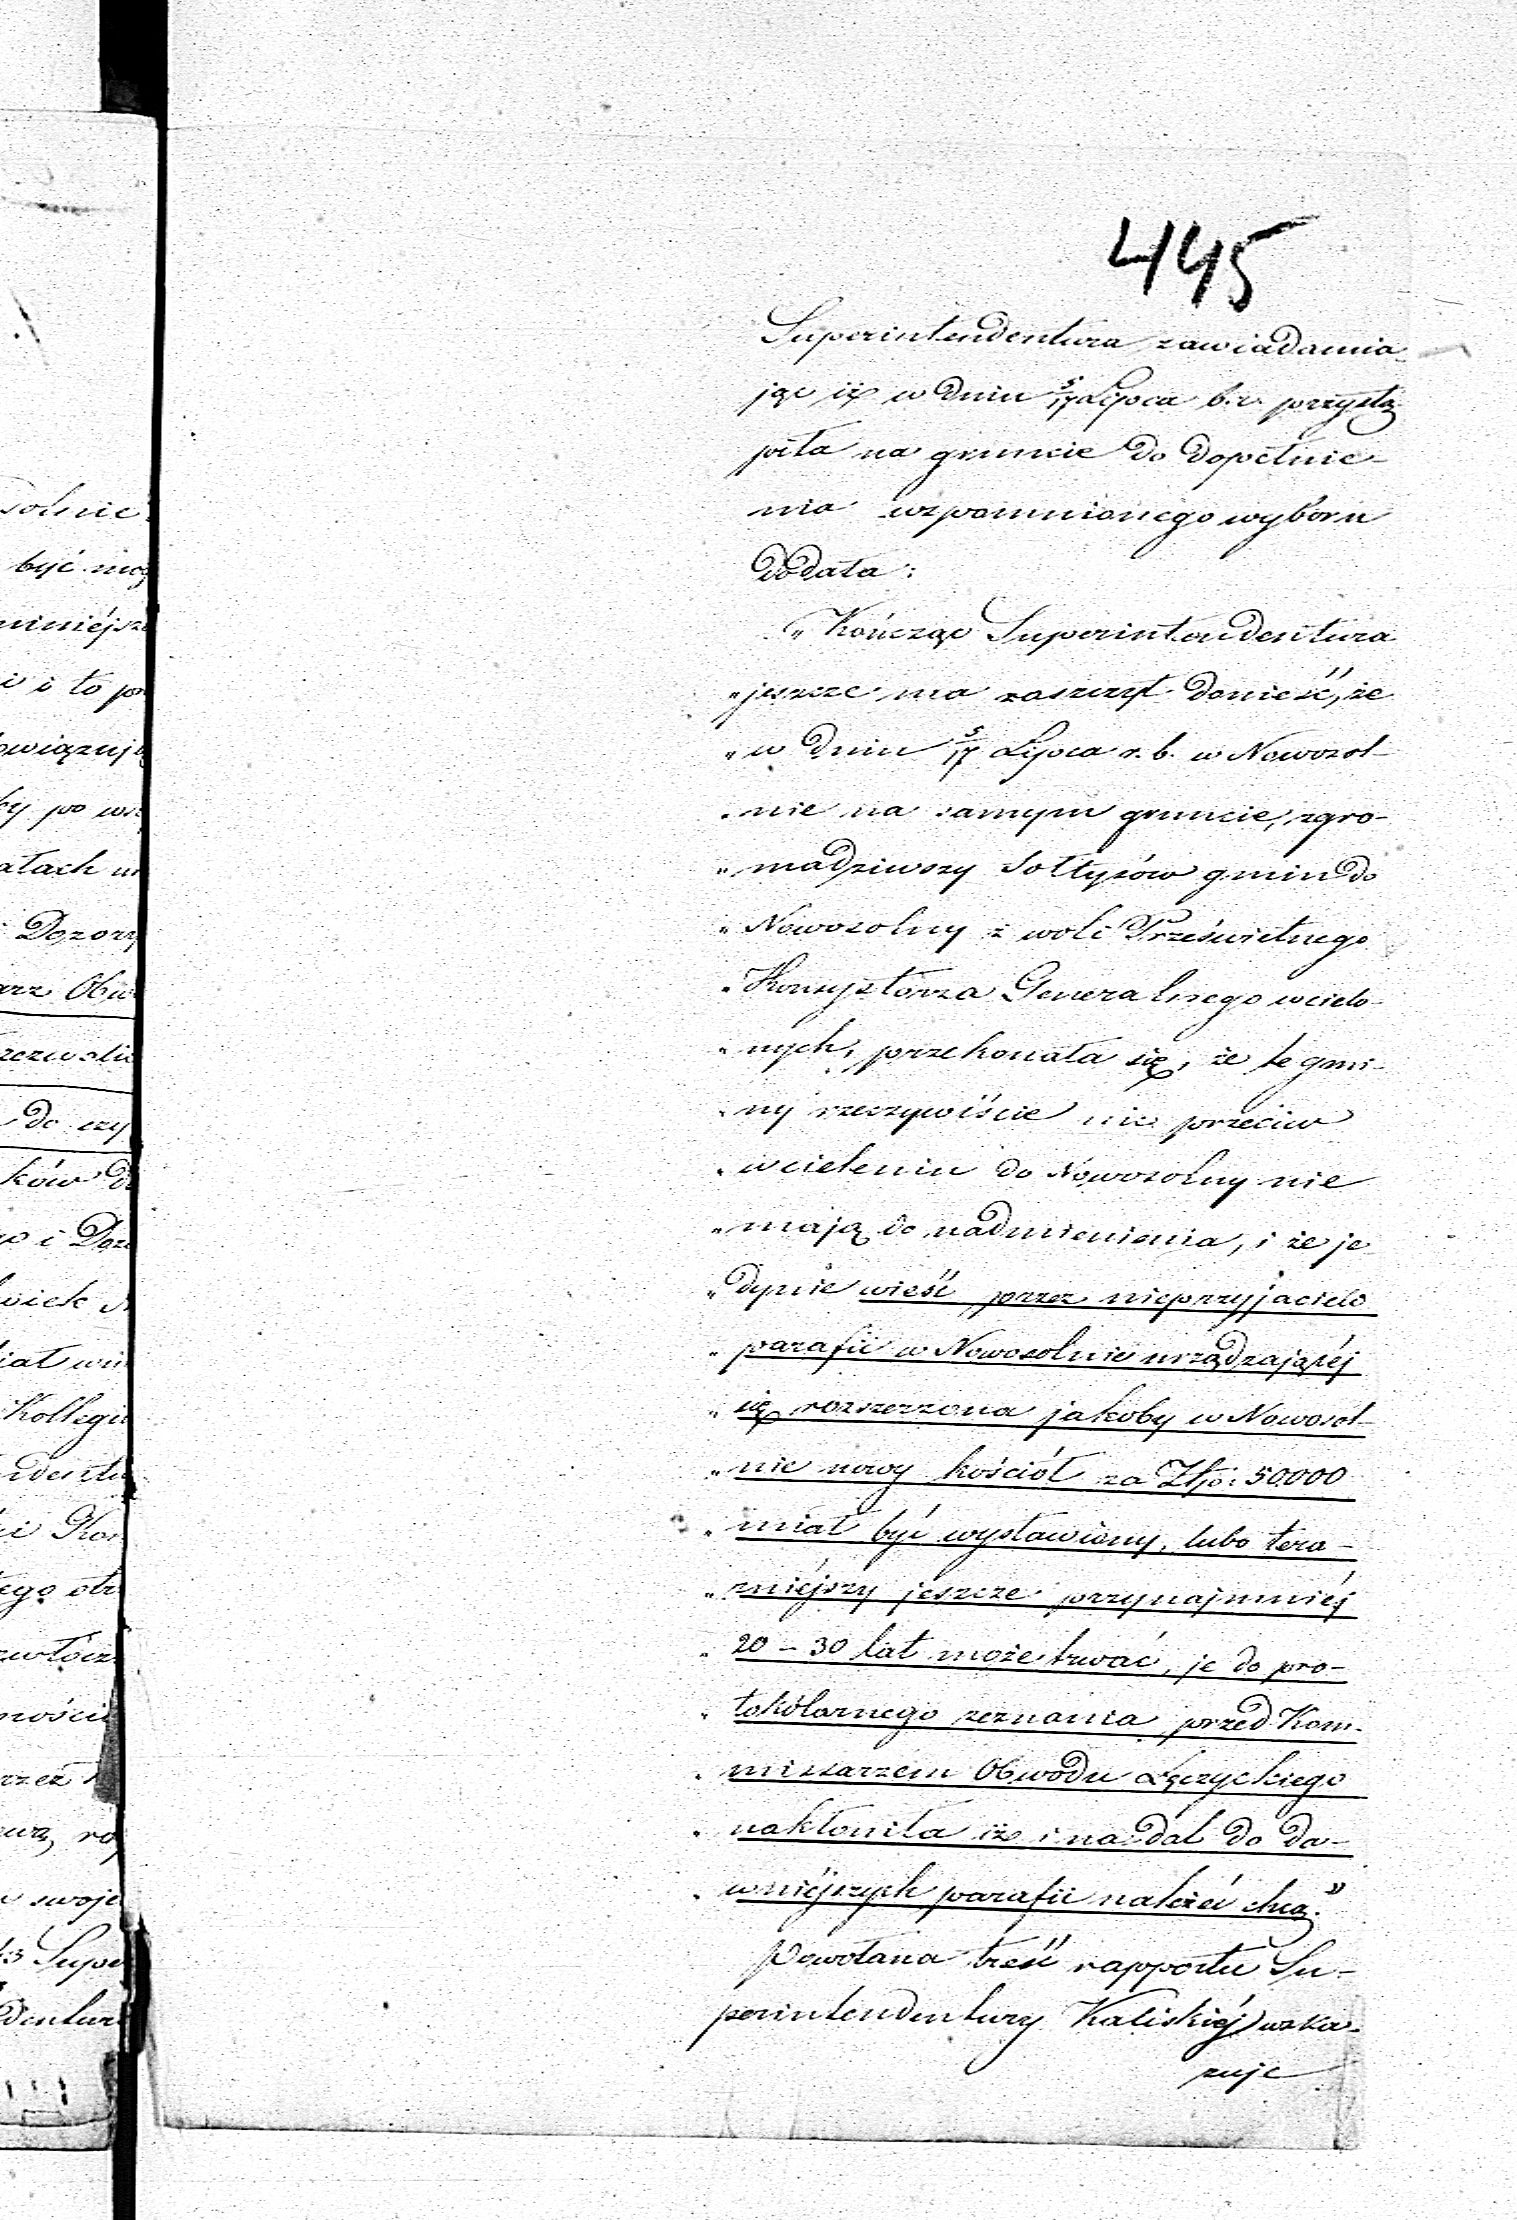 445
Superintendentura zawiadamia-
jąc iż w dniu 5/17 Lipca b.r. przystą-
piła na gruncie do dopełnie-
nia wzpomnionego wyboru
dodała:
„Kończąc Superintendentura
„jeszcze ma zaszczyt donieść, że
„w dniu 5/17 Lipca r.b. w Nowosol-
„nie na samym gruncie, zgro-
„madziwszy Sołtysów gmin do
„Nowosolny z woli Prześwietnego
„Konsystorza Generalnego wcielo-
„nych, przekonała się, że te gmi-
„ny rzeczywiście nic przeciw
„wcieleniu do Nowosolny nie
„mają do nadmienienia, i że je
„dynie wieść przez nieprzyjacieli
„parafii w Nowosolnie urządzającéj
„się rozszerzona jakoby w Nowosol-
„nie nowy kościół za Złp: 50000
„miał być wystawiony, lubo tera-
„zniéjszy jeszcze przynajmniéj
„20 – 30 lat może trwać, je do pro-
„tokólarnego zeznania przed Kom-
„missarzem Obwodu Łęczyckiego
„nakłoniła iż i nadal do da-
„wniéjszych parafii należéć chcą.”
Powołana treść rapportu Su-
perintendentury Kaliskiéj wska-
zuje
solnie
być mog
niniéjsz
i i to
owiązuj
po
Dozor
Obw
do czy
ków
i Doz
Kollegi
swoje
Supe